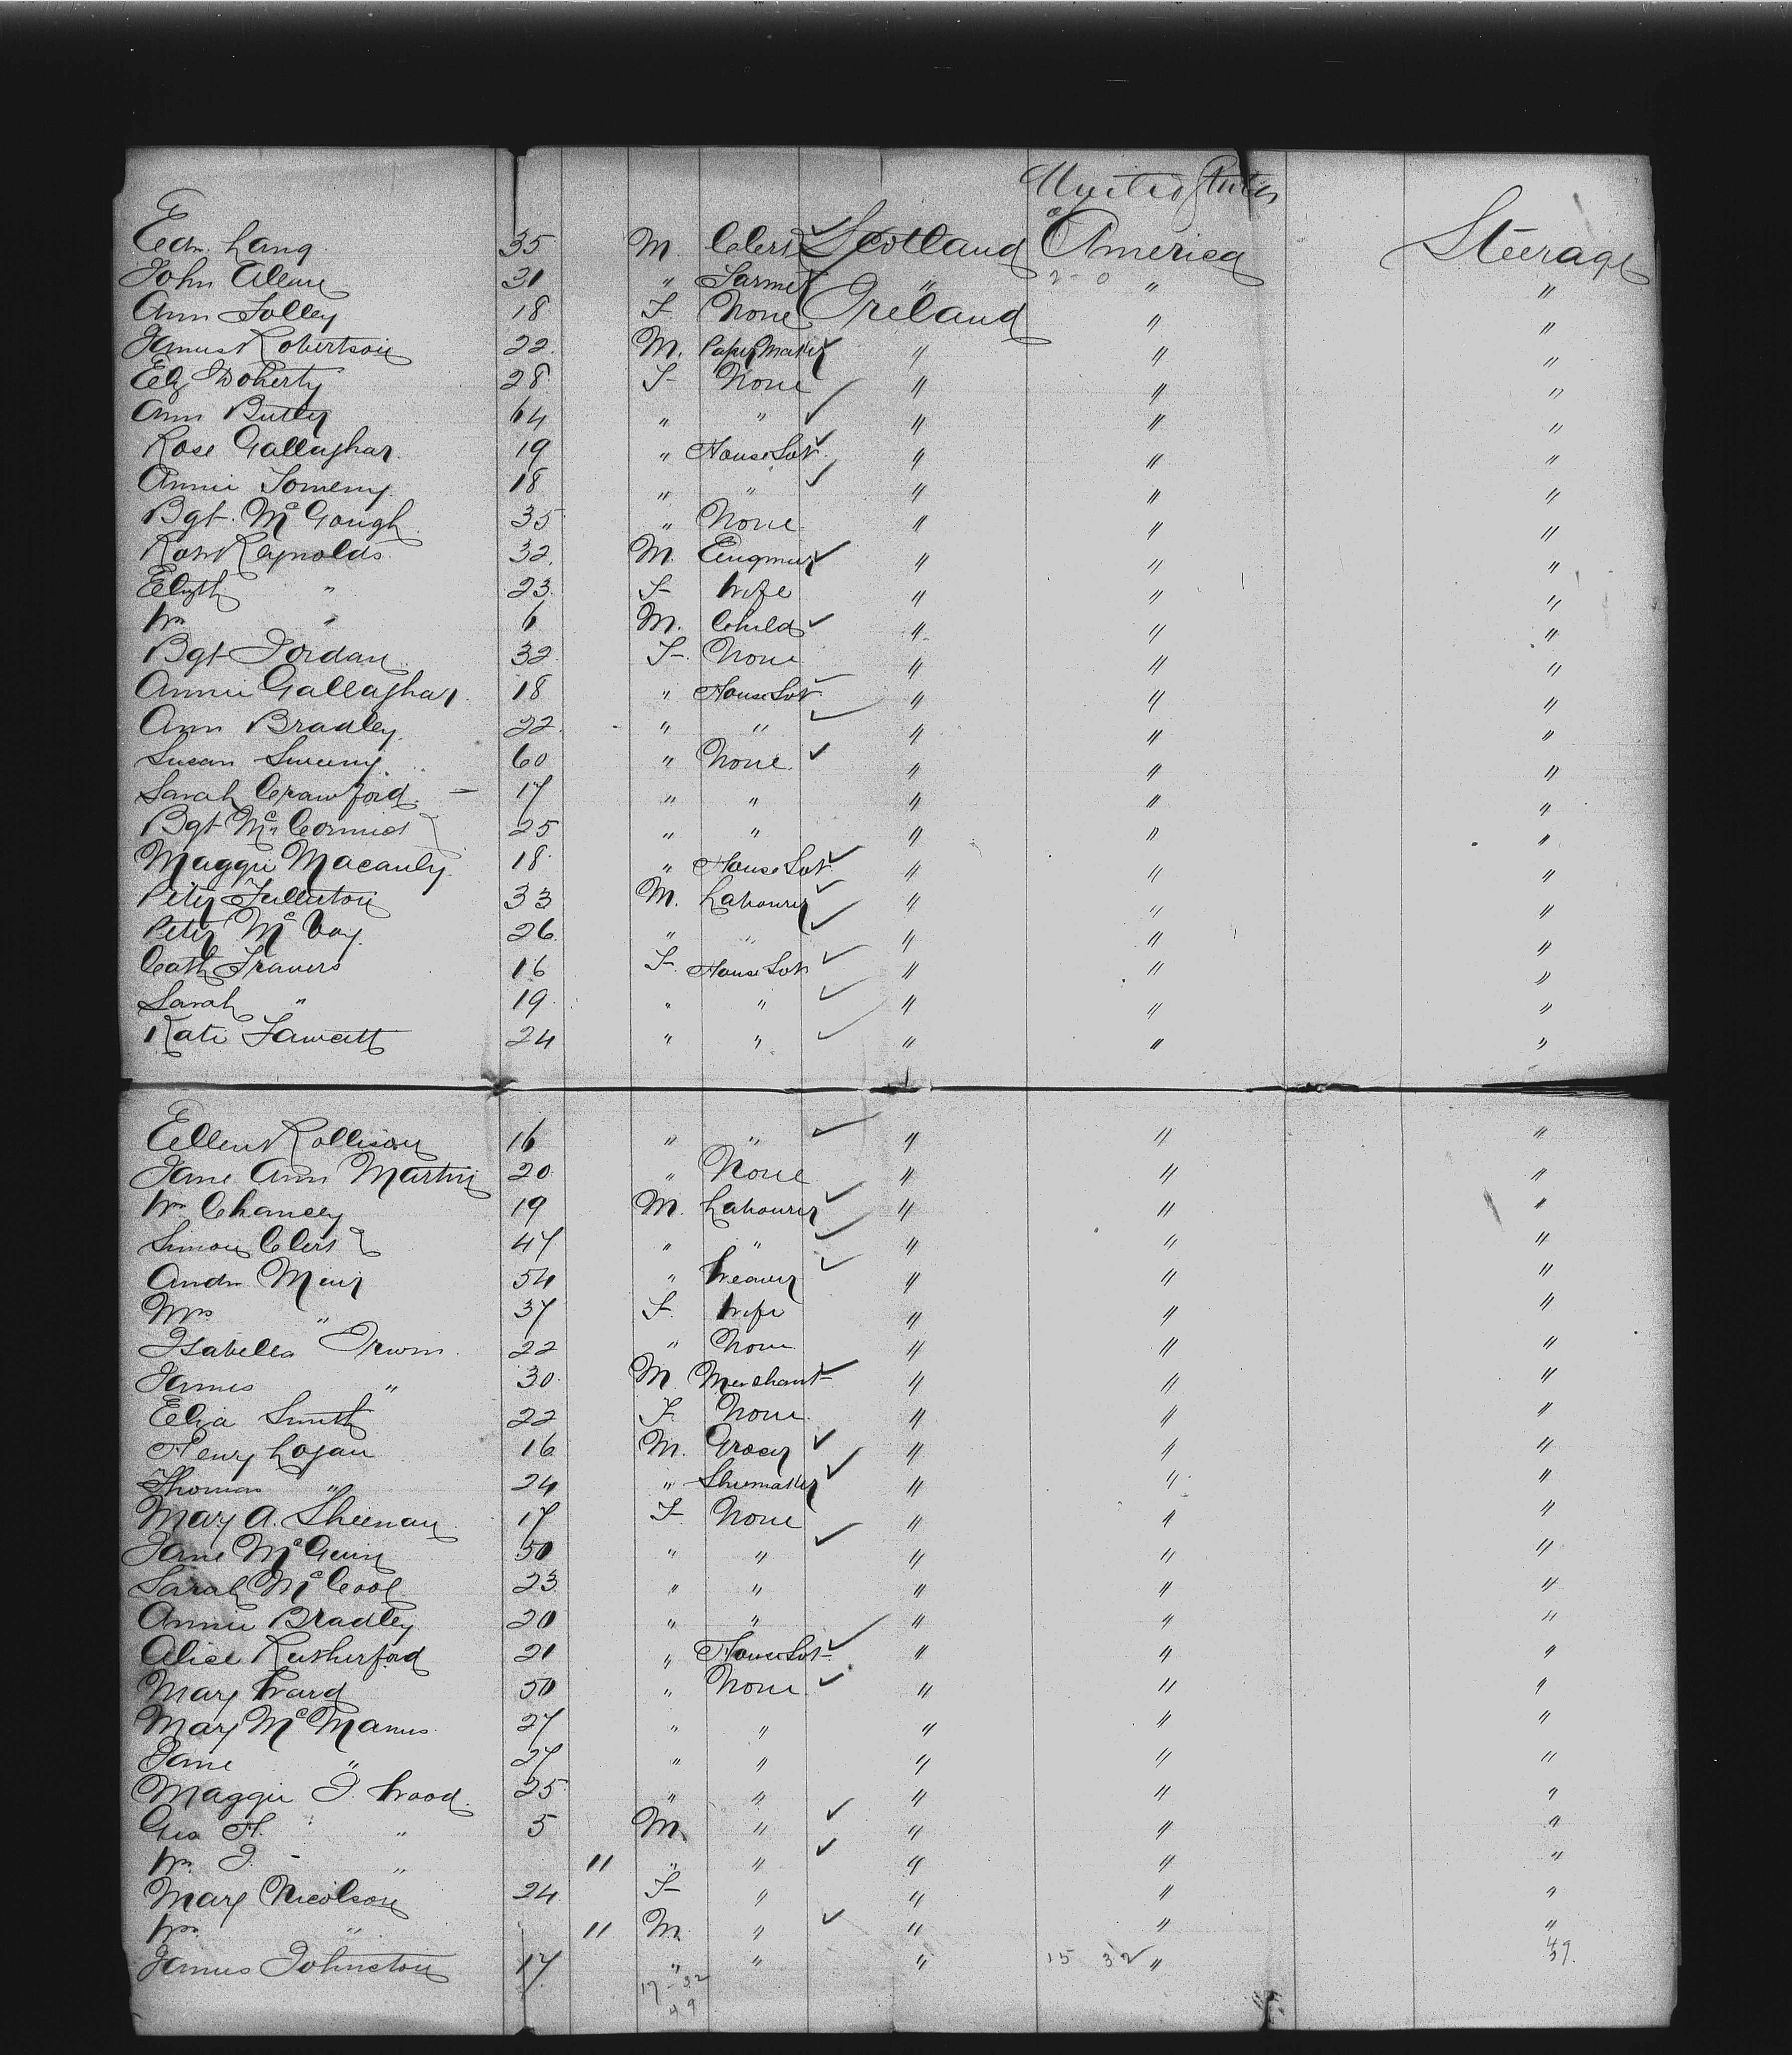 United States
Edw. Lang 35 M. Clerk Scotland of America Steerage
John Allan 31 " Farmer " 2-0 " "
Ann Tolley 18 F None Ireland " "
James Robertson 22 M. Paper Maker " " "
Elz Doherty 28 F None " " "
Ann Butler 64 " " " " "
Rose Gallaghar 19 " House Svt " " "
Annie Tomeny 18 " " " " "
Bgt. McGough 35 " None " " "
Robt Reynolds 32 M. Engineer " " "
Elizth " 23 F Wife " " "
Wm " 6 M. Child " " "
Bgt Jordan 32 F None " " "
Annie Gallaghar 18 " House Svt " " "
Ann Bradley 22 " " " " "
Susan Sweeny 60 " None " " "
Sarah Crawford 17 " " " " "
Bgt McCormick 25 " " " " "
Maggie Macauly 18 " House Svt " " "
Peter Fullerton 33 M. Labourer " " "
Peter McVay 26 " " " " "
Cath Travers 16 F House Svt " " "
Sarah " 19 " " " " "
Kate Fawcett 24 " " " " "
Ellen Rollison 16 " " " " "
Jane Ann Martin 20 " None " " "
Wm Chancey 19 M. Labourer " " "
Simon Clark 47 " " " " "
Andw Muir 54 " Weaver " " "
Mrs " 37 F Wife " " "
Isabella Irwin 22 " None " " "
James " 30 M Merchant " " "
Eliza Smith 22 F None " " "
Henry Logan 16 M. Grocer " " "
Thomas " 24 " Shoemaker " " "
Mary A. Sheenan 17 F None " " "
Jane McGuin 50 " " " " "
Sarah McCool 23 " " " " "
Annie Bradley 20 " " " " "
Alice Rutherford 21 " House Svt " " "
Mary Ward 50 " None " " "
Mary McManus 27 " " " " "
Jane " 27 " " " " "
Maggie J. Wood 25 " " " " "
Geo H. " 5 M. " " " "
Wm J. " 11 " " " " "
Mary Nicolson 24 F " " " "
Wm " 11 M " " " "
James Johnston 17 " " " 15 32 " 49
17-32
49